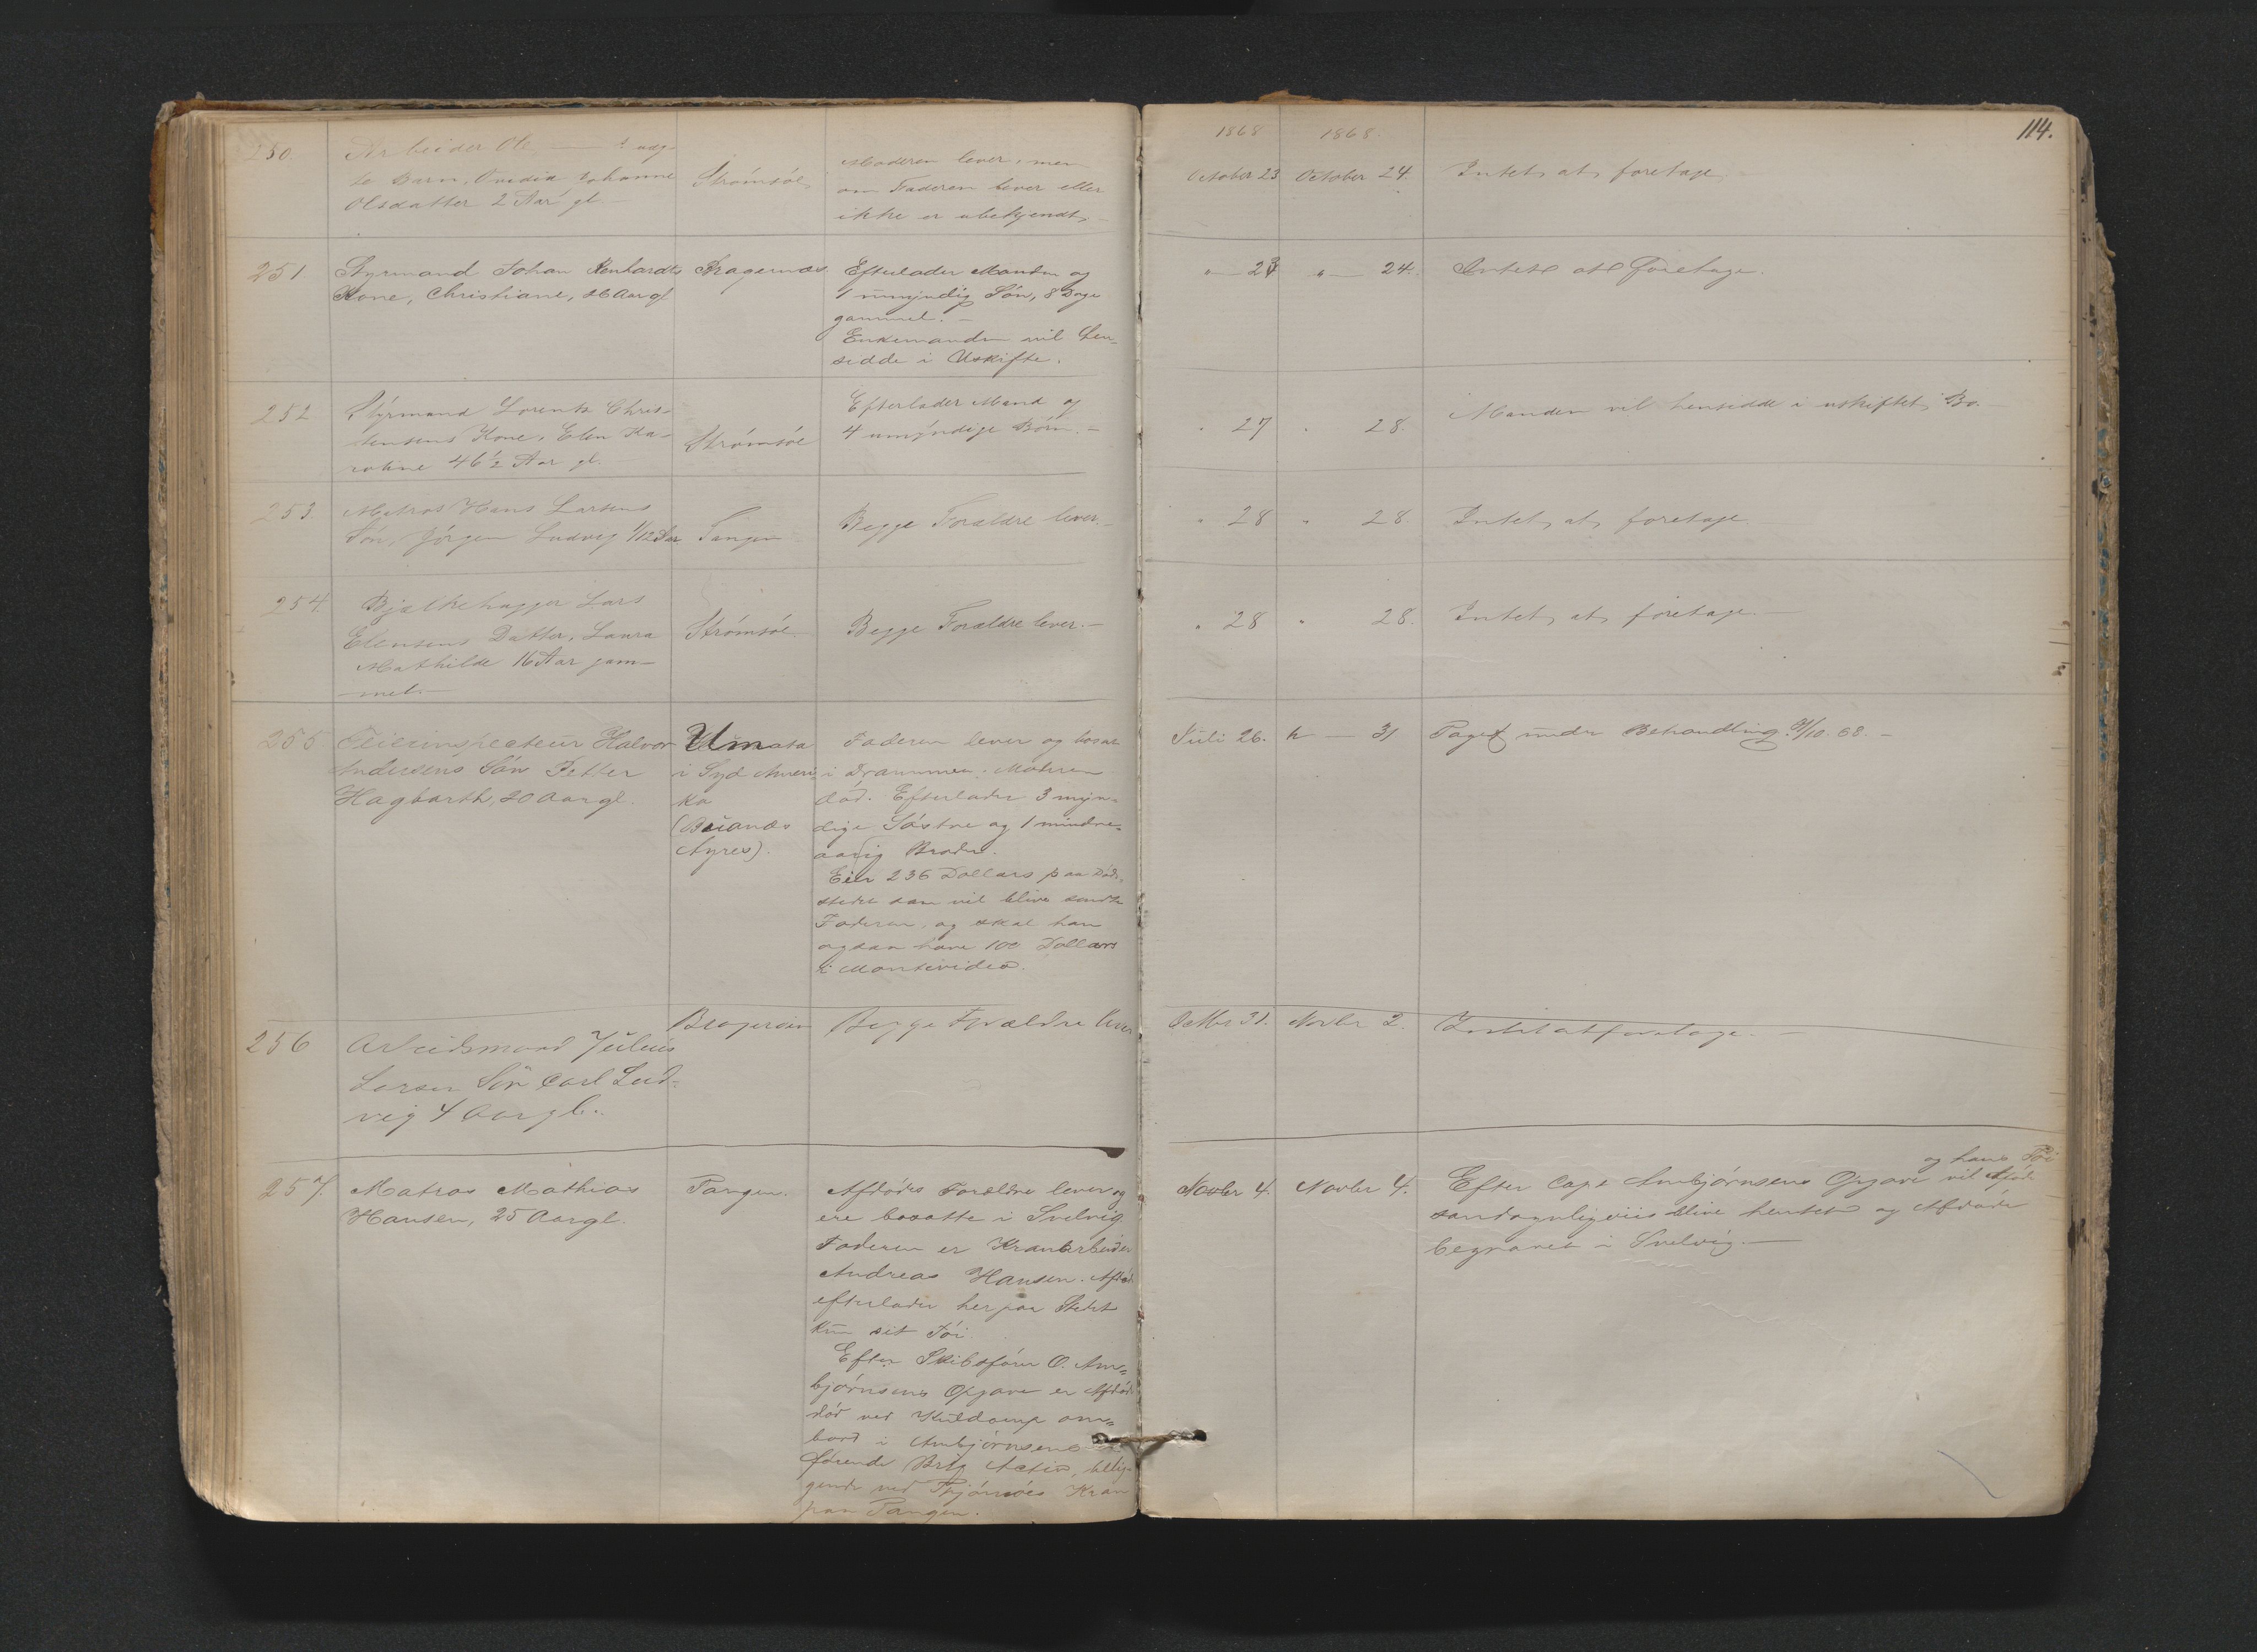 1868 1868. 114.
250. Arbeider Ole
te Barn, Ovedia Johanne
Olsdatter 2 Aar gl. —
Strömsöe
Moderen lever, men
om Faderen lever eller
ikke er ubekjendt. —
October 23 October 24. Intet at foretage
251. Styrmand Johan
Kone, Christiane, Aar gl
Bragernæs.
Efterlader Manden og
1 umyndig Sön, 8 Dage
gammel. —
Enkemanden vil hen-
sidde i Uskifte.
" — 23 " — 24. Intet at foretage.
252 Styrmand Lorentz Chris-
tensens Kone, Elen Ka-
roline 46 1/2 Aar gl.
Strömsöe
Efterlader Mand og
4 umyndige Börn. —
" 27 " 28. Manden vil hensidde i uskiftet Bo.
253. Matros Hans Larsens
Sön, Jörgen Ludvig 1/12 Aar
Tangen
Begge Forældre lever. —
" 28 " 28 Intet at foretage
254. Bjælkehugger Lars
Ellensens Datter, Laura
Mathilde 16 Aar gam-
mel. —
Strömsöe.
Begge Forældre lever. —
" 28 " 28. Intet at foretage. —
255 Feierinspecteur Halvor
Andersens Sön Petter
Hagbarth, 20 Aar gl.
i Syd Ameri-
ka
(Buanos
Ayres).
Faderen lever og bosat
i Drammen. Moderen
död. Efterlader 3 myn-
dige Söstre og 1 mindre-
aarig Broder.
Eier 236 Dollars paa Döds-
stedet som vil blive sendt
Faderen, og skal han
ogsaa have 100 Dollars
i Montevideo.
Juli 26. " — 31 Taget under Behandling 31/10. 68. —
256 Arbeidsmand Julius
Larsen Sön Carl Lud-
vig 4 Aar gl.
Bragernæs
Begge Forældre lever
Octbr 31. Novbr 2. Intet at foretage. —
257. Matros Mathias
Hansen, 25 Aar gl.
Tangen.
Afdödes Forældre lever og
ere bosatte i Svelvig.
Faderen er Kranarbeider
Andreas Hansen. Afdöde
efterlader her paa Stedet
kun sit Töi.
Efter Skibsförer O. Am-
björnsens Opgave er Afdöde
död ved Kuldamp om-
bord i Ambjörnsens
förende Brig Activ, belig-
gende ved Kran
paa Tangen.
Novbr 4. Novbr 4.
og hans Töi
Efter Capt Ambjörnsens Opgave vil Afdöde
sandsynligviis blive hentet og Afdöde
begravet i Svelvig. —